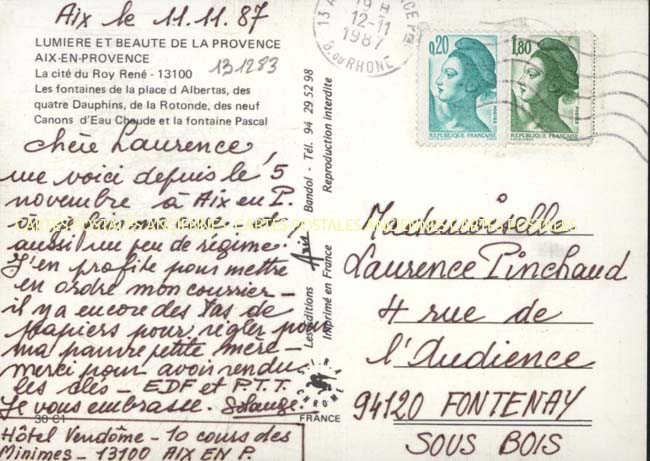 Aix le 11.11.87
LUMIERE ET BEAUTE DE LA PROVENCE
AIX-EN-PROVENCE
La cité du Roy René - 13100
131283
Les fontaines de la place d Albertas, des
quatre Dauphins, de la Rotonde, des neuf
Canons d'Eau Chaude et la fontaine Pascal
chère Laurence,
me voici depuis le 5
novembre à Aix en P.
aussi un peu de régime.
J'en profite pour mettre
en ordre mon courrier -
il y a encore des tas de
papiers pour régler pour
ma pauvre petite mère -
merci pour avoir rendu
les clés - EDF et P.T.T.
Je vous embrasse. Solange.
30 C1
Hôtel Vendôme - 10 cours des
Minimes - 13100 AIX EN P.
CARTES POSTALES ANCIENNES - CARTES POSTALES ANCIENNES - CARTES POSTALES
Les éditions Aris Bandol - Tél. 94 29 52 98
Imprimé en France Reproduction interdite
MIRA
CHROME
FRANCE
19 H
12-11
1987
B. DU RHONE
0,20
POSTES
REPUBLIQUE FRANÇAISE
1,80
POSTES
REPUBLIQUE FRANÇAISE
Mademoiselle
Laurence Pinchaud
4 rue de
l'Audience
94120 FONTENAY
SOUS BOIS